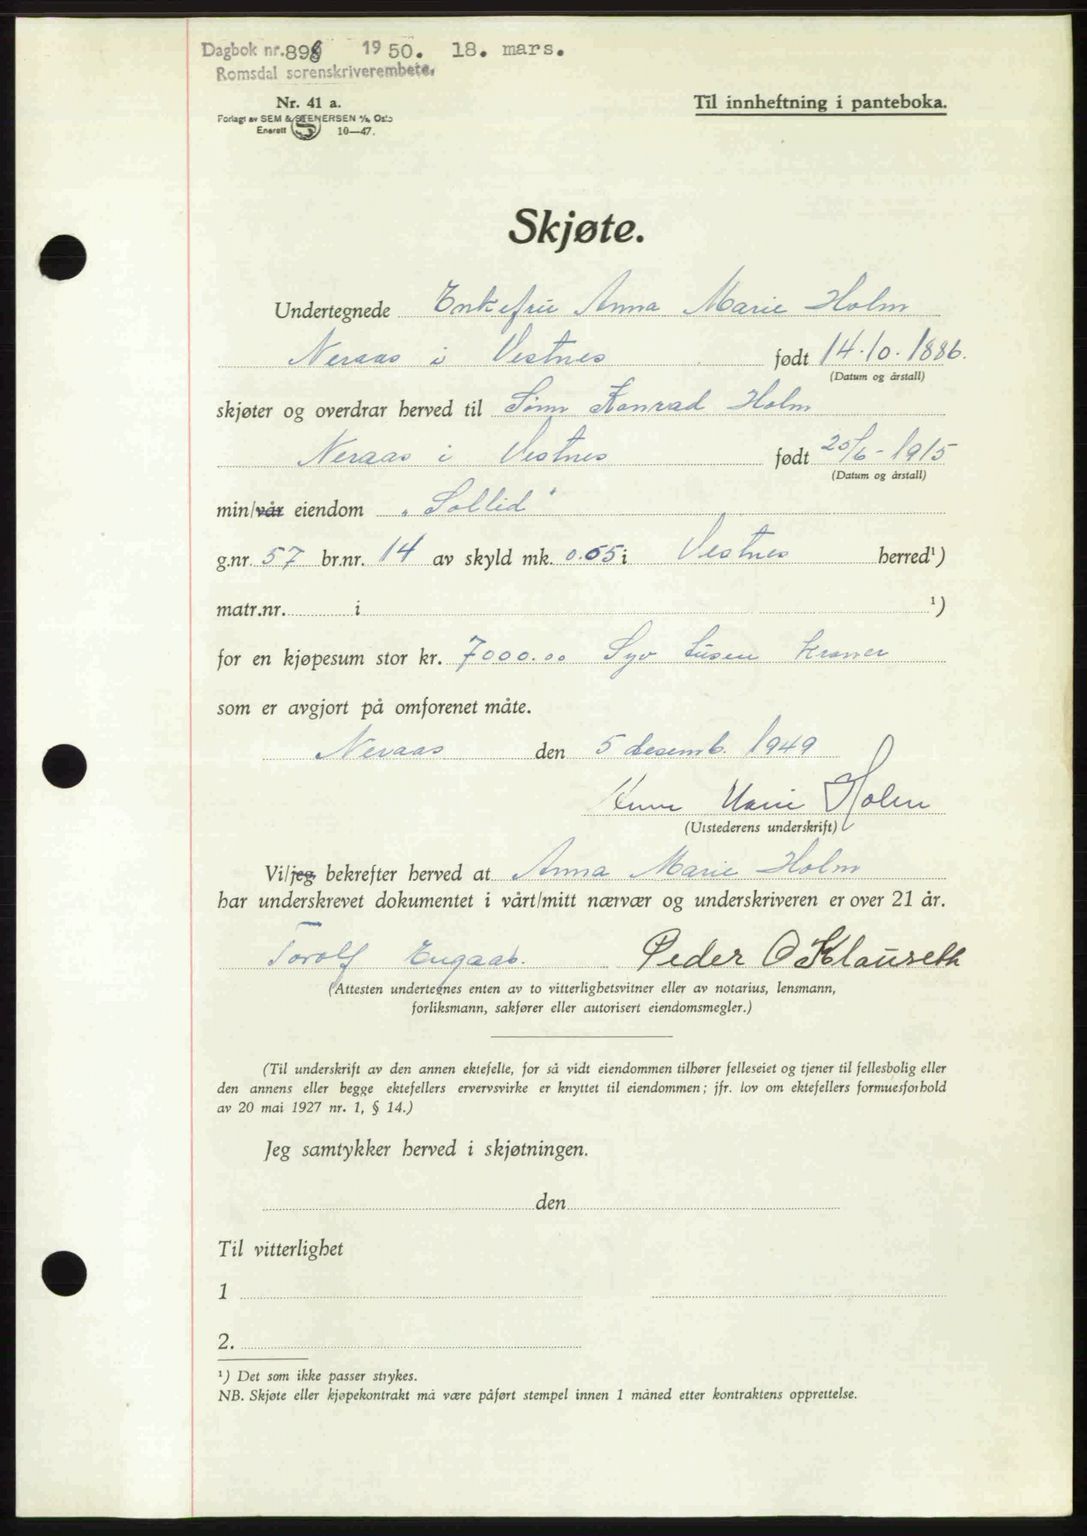 Dagbok nr. 898 1950. 18. mars.
Romsdal sorenskriverembete.
Nr. 41 a.
Forlagt av SEM & STENERSEN A/S, Oslo
Enerett S 10—47.
Til innheftning i panteboka.
Skjøte.
Undertegnede Enkefru Anna Marie Holm
Neraas i Vestnes født 14.10.1886.
(Datum og årstall)
skjøter og overdrar herved til Sønn Konrad Holm
Neraas i Vestnes født 25/6-1915
(Datum og årstall)
min/vår eiendom „Sollid"
g.nr. 57 br.nr. 14 av skyld mk. 0.65 i Vestnes herred¹)
matr.nr. i ¹)
for en kjøpesum stor kr. 7000.00 Syv tusen kroner
som er avgjort på omforenet måte.
Neraas den 5 desemb. 1949
Anna Marie Holm
(Utstederens underskrift)
Vi/jeg bekrefter herved at Anna Marie Holm
har underskrevet dokumentet i vårt/mitt nærvær og underskriveren er over 21 år.
Torolf Peder O Klauseth
(Attesten undertegnes enten av to vitterlighetsvitner eller av notarius, lensmann,
forliksmann, sakfører eller autorisert eiendomsmegler.)
(Til underskrift av den annen ektefelle, for så vidt eiendommen tilhører felleseiet og tjener til fellesbolig eller
den annens eller begge ektefellers ervervsvirke er knyttet til eiendommen; jfr. lov om ektefellers formuesforhold
av 20 mai 1927 nr. 1, § 14.)
Jeg samtykker herved i skjøtningen.
den
Til vitterlighet
1
2.
¹) Det som ikke passer strykes.
NB. Skjøte eller kjøpekontrakt må være påført stempel innen 1 måned etter kontraktens opprettelse.